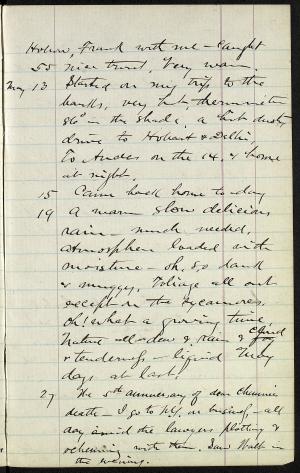 Hobow, Frank with me - caught
55 nice trout. Very warm.
May 13 Started on my trip to the
banks, very hot, thermometer
86° in the shade, a hot dusty
drive to Hobart & Delhi,
To Andes on the 14. & home
at night.
15 Came back home to-day
19 A warm slow delicious
rain - much needed,
atmosphere loaded with
moisture - oh, so dank
& muggy. Foliage all out
except on the sycamores.
Oh! what a growing time,
Nature all dew & rain &
& tenderness - liquid
days at last!
27 The 5th anniversary of dear Channie's
death - I go to N.Y. on business - all
day amid the lawyers plotting &
scheming with them. Saw Walt in
the evening.